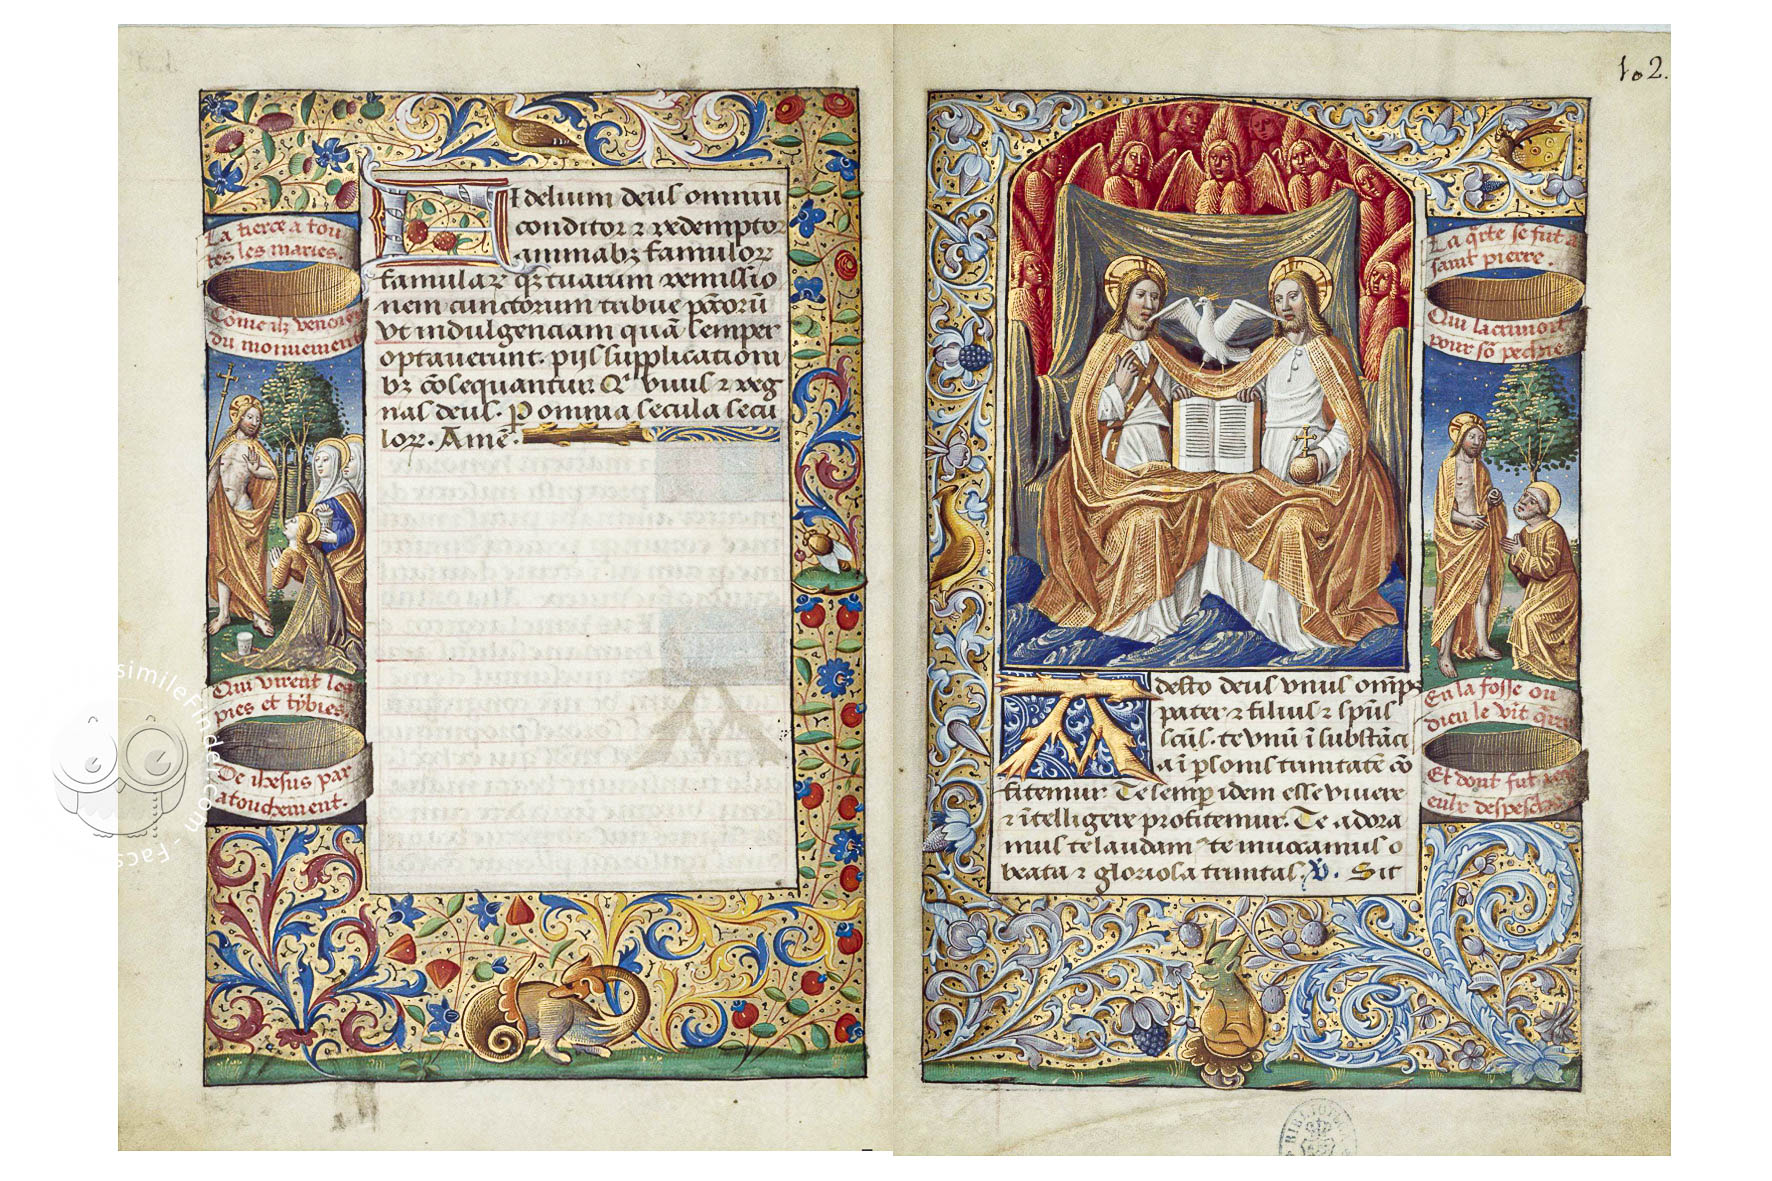 La tierce a tou
tes les maries.
Cõme ilz venoiẽt
du monument
Qui virent les
pies et tybies
De ihesus par
atouchemẽt.
Fidelium deus omniu
conditor ⁊ redemptor
animabꝫ famulorꝝ
famularꝝ qꝫ tuarum remissio
nem cunctorum tribue pc̃torũ
Vt indulgenciam quã semper
optauerunt. pijs supplicationi
bꝫ cõsequantur Qͥ viuis ⁊ reg
nas deus. Ꝑ omnia secula secu
lorꝝ. Amẽ.
102.
La qr̃te se fut a
saint pierre.
Qui lacrimoit
pour sõ peche
En la fosse ou
dieu le vit
Et dont fut
Adesto deus vnus omp̃s
pater ⁊ filius ⁊ sp̃us
sc̃us. te vnũ ĩ substãci
a ĩ ꝑsonis trinitatẽ cõ
fitemur Te semꝑ idem esse viuere
⁊ ĩtelligere profitemur. Te adora
mus te laudam⁹ te inuocamus o
beata ⁊ gloriosa trinitas. V̓. Sit
BIBLIOTE
simileFinder.com - Facs